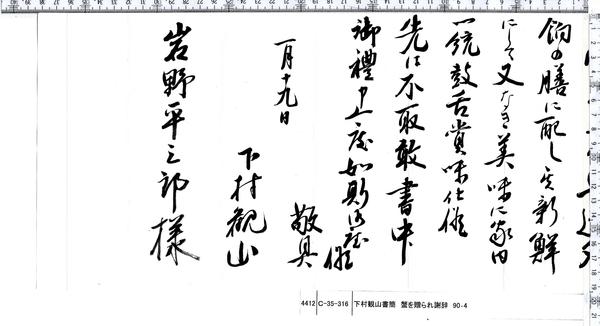 餉の膳に配し其新鮮
にして又なき美味に家内
一統鼓舌賞味仕候
先は不取敢書中
御禮申上度如斯御座候
敬具
一月十九日
下村観山
岩野平三郎様
4412 C-35-316 下村観山書簡 蟹を贈られ謝辞 90-4